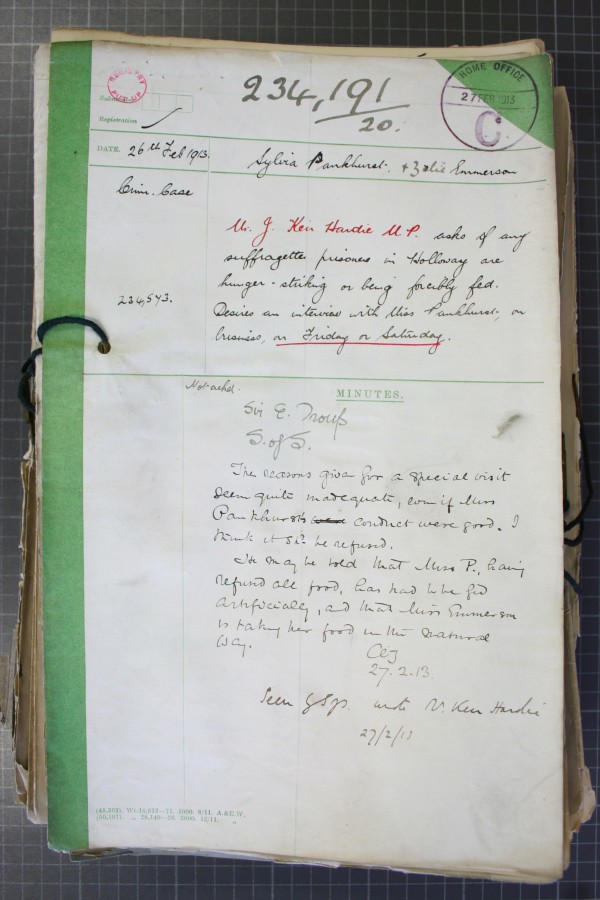 REGISTRY
P.U.P.
234,191
20.
HOME OFFICE
27 FEB 1913
C
Registration
DATE.
26th Feb 1913.
Sylvia Pankhurst. & Zelie Emmerson
Crim. Case
Mr. J. Keir Hardie M.P. asks if any
suffragette prisoners in Holloway are
hunger-striking or being forcibly fed.
234,573.
Desires an interview with Miss Pankhurst, on
business, on Friday or Saturday.
Not ackd.
MINUTES.
Sir E. Troup
S. of S.
The reasons given for a special visit
seem quite inadequate, even if Miss
Pankhurst's conduct were good. I
think it shd. be refused.
He may be told that Miss P., having
refused all food, has had to be fed
artificially, and that Miss Emmerson
is taking her food in the natural
way.
27.2.13.
Seen by wrote Mr. Keir Hardie
27/2/13
(45,203). Wt.15,612—71. 5000. 8/11. A.&E.W.
(50,197). „ 28,140—28. 5000. 12/11. „